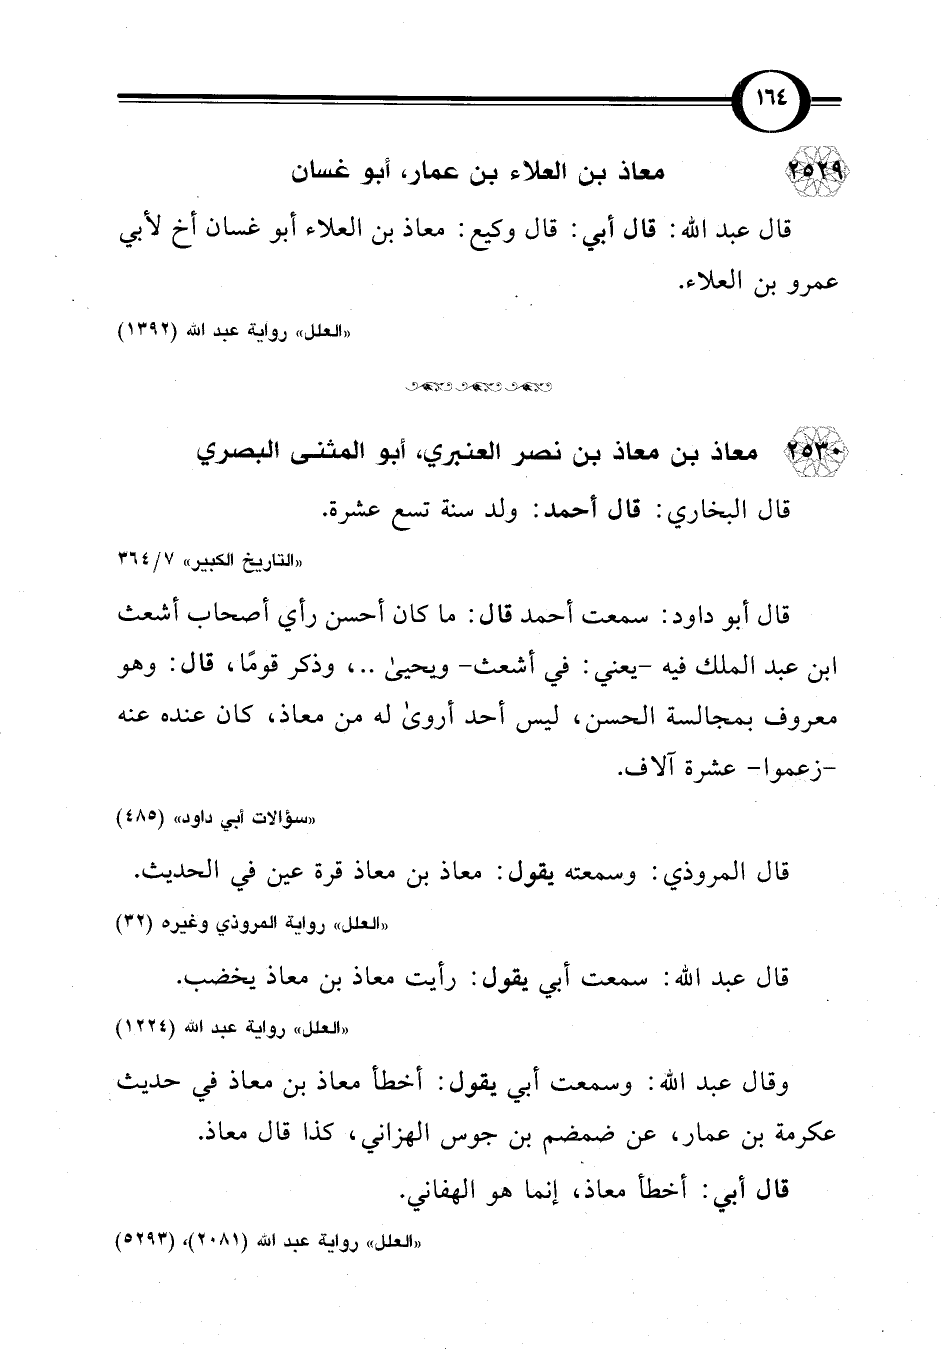 ١٦٤
٢٥٢٩ معاذ بن العلاء بن عمار، أبو غسان
قال عبد الله: قال أبي: قال وكيع: معاذ بن العلاء أبو غسان أخ لأبي
عمرو بن العلاء.
«العلل» رواية عبد الله (١٣٩٢)
٢٥٣٠ معاذ بن معاذ بن نصر العنبري، أبو المثنى البصري
قال البخاري: قال أحمد: ولد سنة تسع عشرة.
«التاريخ الكبير» ٧/ ٣٦٤
قال أبو داود: سمعت أحمد قال: ما كان أحسن رأي أصحاب أشعث
ابن عبد الملك فيه -يعني: في أشعث- ويحيىٰ ..، وذكر قومًا، قال: وهو
معروف بمجالسة الحسن، ليس أحد أروىٰ له من معاذ، كان عنده عنه
-زعموا- عشرة آلاف.
«سؤالات أبي داود» (٤٨٥)
قال المروذي: وسمعته يقول: معاذ بن معاذ قرة عين في الحديث.
«العلل» رواية المروذي وغيره (٣٢)
قال عبد الله: سمعت أبي يقول: رأيت معاذ بن معاذ يخضب.
«العلل» رواية عبد الله (١٢٢٤)
وقال عبد الله: وسمعت أبي يقول: أخطأ معاذ بن معاذ في حديث
عكرمة بن عمار، عن ضمضم بن جوس الهزاني، كذا قال معاذ.
قال أبي: أخطأ معاذ، إنما هو الهفاني.
«العلل» رواية عبد الله (٢٠٨١)، (٥٢٩٣)